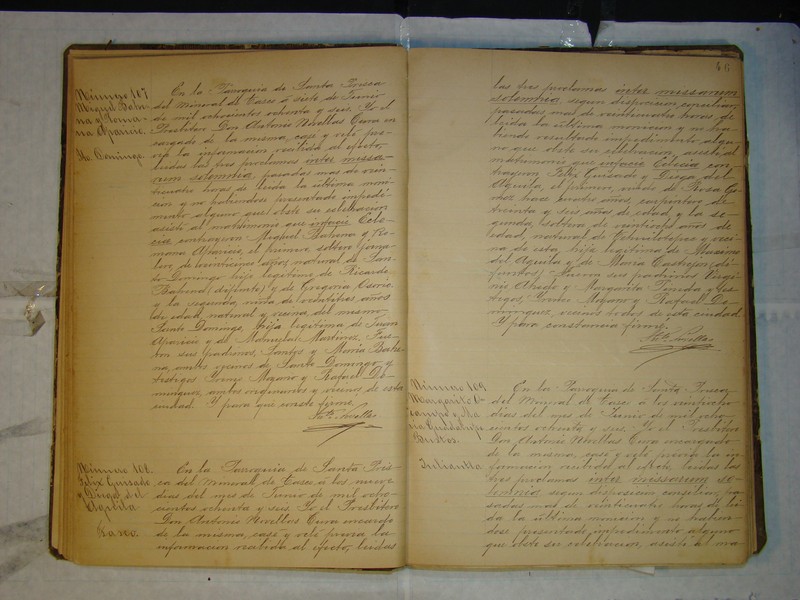 Número 107
Miguel Bahe-
na y Roma-
na Aparicio.
Sto. Domingo
En la Parroquia de Santa Prisca
del Mineral de Tasco á siete de Junio
de mil ochocientos ochenta y seis. Yo el
Presbítero Don Antonio Novellas Cura en-
cargado de la misma, casé y velé pre-
via la informacion recibida al efecto,
leidas las tres proclamas inter missa-
rum solemnia, pasadas mas de vein-
ticuatro horas de leida la última moni-
cion y no habiendose presentado impedi-
mento alguno que obste su celebracion
asistí al matrimonio que infacie Ecle-
cia contrageron Miguel Bahena y Ro-
mana Aparicio, el primero, soltero
de años, natural de San-
to Domingo hijo legítimo de Ricardo
Bahena (difunto) y de Gregoria Osorio
y la segunda, niña de años
de edad, natural y vecina del mismo
Santo Domingo, hija legítima de Juan
Aparicio y de Martinez. Fue-
ron sus padrinos, Santos y María Bahe-
na, ambos vecinos de Santo Domingo y
testigos Moyano y Rafael Do-
minguez, ambos originarios y vecinos de esta
ciudad. Y para que conste firmé.
Anto. Novellas
Número 108.
Felix Quesado
y Diega del
Aguila
Tasco.
En la Parroquia de Santa Pris-
ca del Mineral de Tasco á los nueve
dias del mes de Junio de mil ocho-
cientos ochenta y seis. Yo el Presbítero
Don Antonio Novellas Cura encargado
de la misma, casé y velé previa la
informacion recibida al efecto, leidas
46
las tres proclamas inter missarum
solemnia segun disposicion conciliar,
pasadas mas de veinticuatro horas de
leida la última monicion y no ha-
biendo resultado impedimento algu-
no que obste su celebracion, asistí al
matrimonio que infacie Eclecia con-
trageron Felix Quesado y Diega del
Aguila, el primero, viudo de Rosa Go-
mez hace cuatro años, carpintero de
treinta y seis años de edad, y la se-
gunda, soltera de años de
edad, natural de y veci-
na de esta, hija legítima de Maximo
del Aguila y de María Castrejon (di-
funtos). Fueron sus padrinos Virgi-
nio y Margarita Pineda y tes-
tigos, Moyano y Rafael Do-
minguez, vecinos todos de esta ciudad
Y para constancia firmé.
Anto. Novellas
Número 109
Margarito O-
campo y Ma-
ria Guadalupe
Bustos.
En la Parroquia de Santa Prisca
del Mineral de Tasco á los veintiocho
dias del mes de Junio de mil ocho-
cientos ochenta y seis. Yo el Presbítero
Don Antonio Novellas Cura encargado
de la misma, casé y velé previa la in-
formacion recibida al efecto, leidas las
tres proclamas inter missarum so-
lemnia segun disposicion conciliar, pa-
sadas mas de veinticuatro horas de lei-
da la última monicion y no habien-
dose presentado impedimento alguno
que obste su celebracion, asistí al ma-